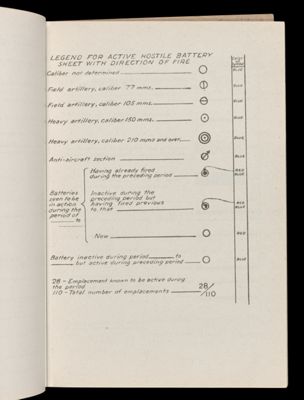 LEGEND FOR ACTIVE HOSTILE BATTERY
SHEET WITH DIRECTION OF FIRE
Caliber not determined
BLUE
Field artillery, caliber 77 mms.
BLUE
Field artillery, caliber 105 mms.
BLUE
Heavy artillery, caliber 150 mms.
BLUE
Heavy artillery, caliber 210 mms and over
BLUE
Anti-aircraft section
BLUE
Batteries
seen to be
in action
during the
period of
to
Having already fired
during the preceding period
RED
BLUE
Inactive during the
preceding period but
having fired previous
to that
RED
BLUE
New
RED
Battery inactive during period to
but active during preceding period
BLUE
28 - Emplacement known to be active during
the period
110 - Total number of emplacements
28/110